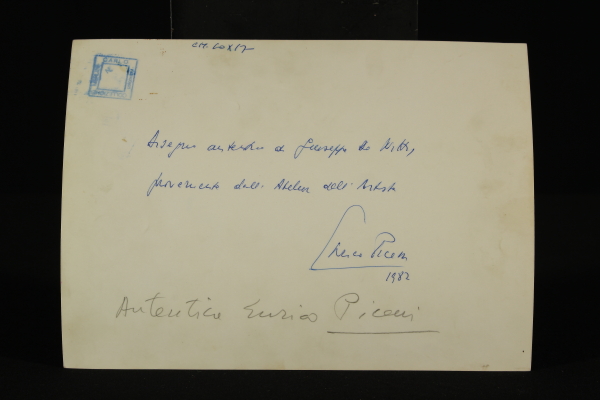 CM. 60x17
Disegno autentico di Giuseppe De Nittis,
proveniente dall'Atelier dell'Artista
Enrico Piceni
1982
Autentica Enrico Piceni